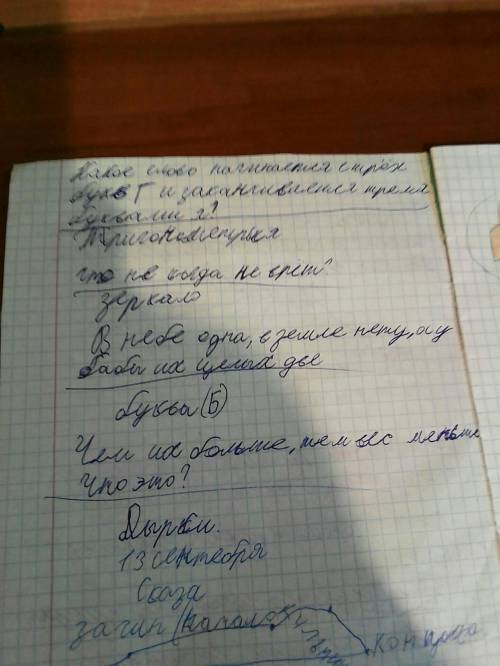 Какое слово начинается с трёх
букв Г и заканчивается тремя
буквами я?
Тригонометрыя
что не когда не врёт?
зеркало
В небе одна, в земле нету, а у
бабы их целых две
буква (Б)
Чем их больше, тем вес меньше
Что это?
Дырки.
13 сентября
зачин (начало)